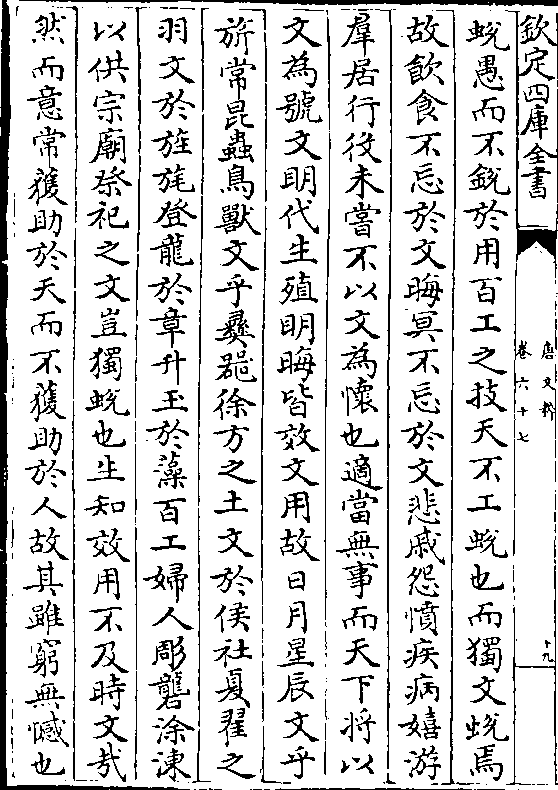 欽定四庫全書
唐文粹
卷六十七
十九
蛻愚而不銳於用百工之技天不工蛻也而獨文蛻焉
故飲食不忘於文晦冥不忘於文悲戚怨憤疾病嬉游
羣居行役未嘗不以文為懷也適當無事而天下將以
文為號文明代生殖明晦皆效文用故日月星辰文乎
旂常昆蟲鳥獸文乎彝器徐方之土文於侯社夏翟之
羽文於旌旄登龍於章升玉於藻百工婦人彫礱涂湅
以供宗廟祭祀之文豈獨蛻也生知效用不及時文㢤
然而意常獲助於天而不獲助於人故其雖窮無憾也